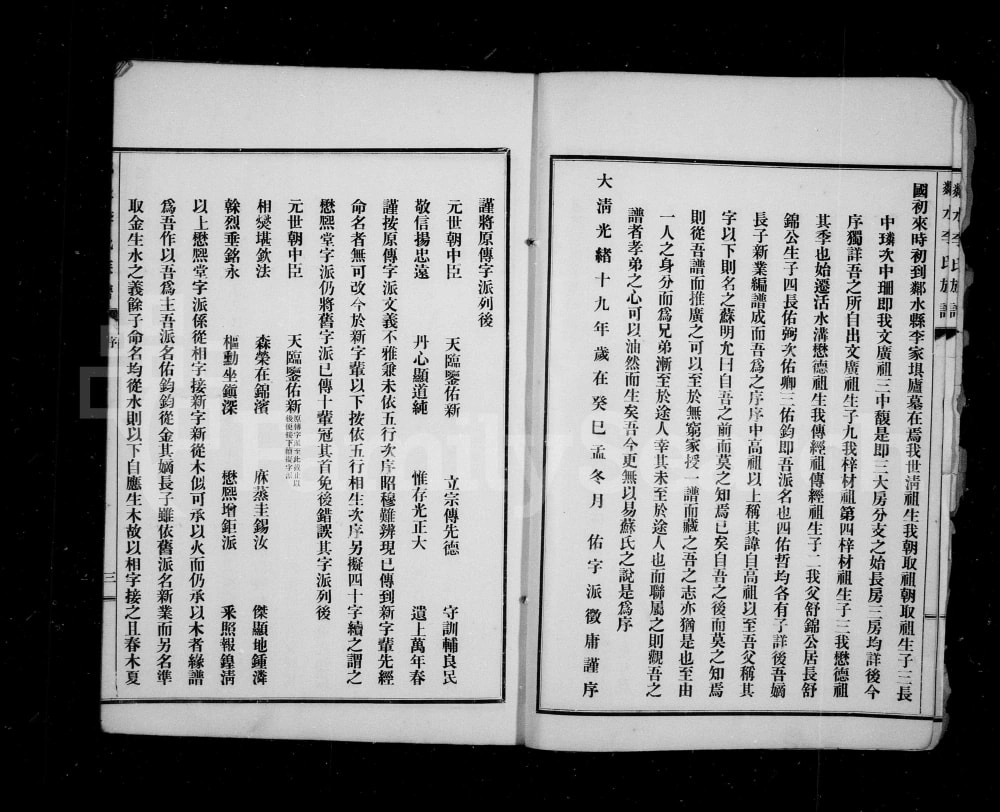 鄰水李氏族譜
國初來時初到鄰水縣李家垻廬墓在焉我世淸祖生我朝取祖朝取祖生子三長
中璘次中珊即我文廣祖三中馥是即三大房分支之始長房三房均詳後今
序獨詳吾之所自出文廣祖生子九我梓材祖第四梓材祖生子三我懋德祖
其季也始遷活水溝懋德祖生我傳經祖傳經祖生子二我父舒錦公居長舒
錦公生子四長佑弼次佑卿三佑鈞即吾派名也四佑哲均各有子詳後吾嫡
長子新業編譜成而吾爲之序序中高祖以上稱其諱自高祖以至吾父稱其
字以下則名之蘇明允曰自吾之前而莫之知焉已矣自吾之後而莫之知焉
則從吾譜而推廣之可以至於無窮家授一譜而藏之吾之志亦猶是也至由
一人之身分而爲兄弟漸至於途人幸其未至於途人也而聯屬之則觀吾之
譜者孝弟之心可以油然而生矣吾今更無以易蘇氏之說是爲序
大淸光緒十九年歲在癸巳孟冬月 佑字派徵庸謹序
謹將原傳字派列後
元世朝中臣 天臨鑒佑新 立宗傳先德 守訓輔良民
敬信揚忠遠 丹心顯道純 惟存光正大 遺上萬年春
謹按原傳字派文義不雅兼未依五行次序昭穆難辨現已傳到新字輩先經
命名者無可改今於新字輩以下按依五行相生次序另擬四十字續之謂之
懋熙堂字派仍將舊字派已傳十輩冠其首免後錯誤其字派列後
元世朝中臣 天臨鑒佑新 原傳字派至此截止以後便接下續擬字派
相爕堪欽法 森榮在錦濱 庥蒸圭錫汝 傑顯地鍾濟
榦烈垂銘永 樞勳坐鎭深 懋熙增鉅派 釆照報鍠淸
以上懋熙堂字派係從相字接新字新從木似可承以火而仍承以木者緣譜
爲吾作以吾爲主吾派名佑鈞鈞從金其嫡長子雖依舊派名新業而另名準
取金生水之義餘子命名均從水則以下自應生木故以相字接之且春木夏
序
三